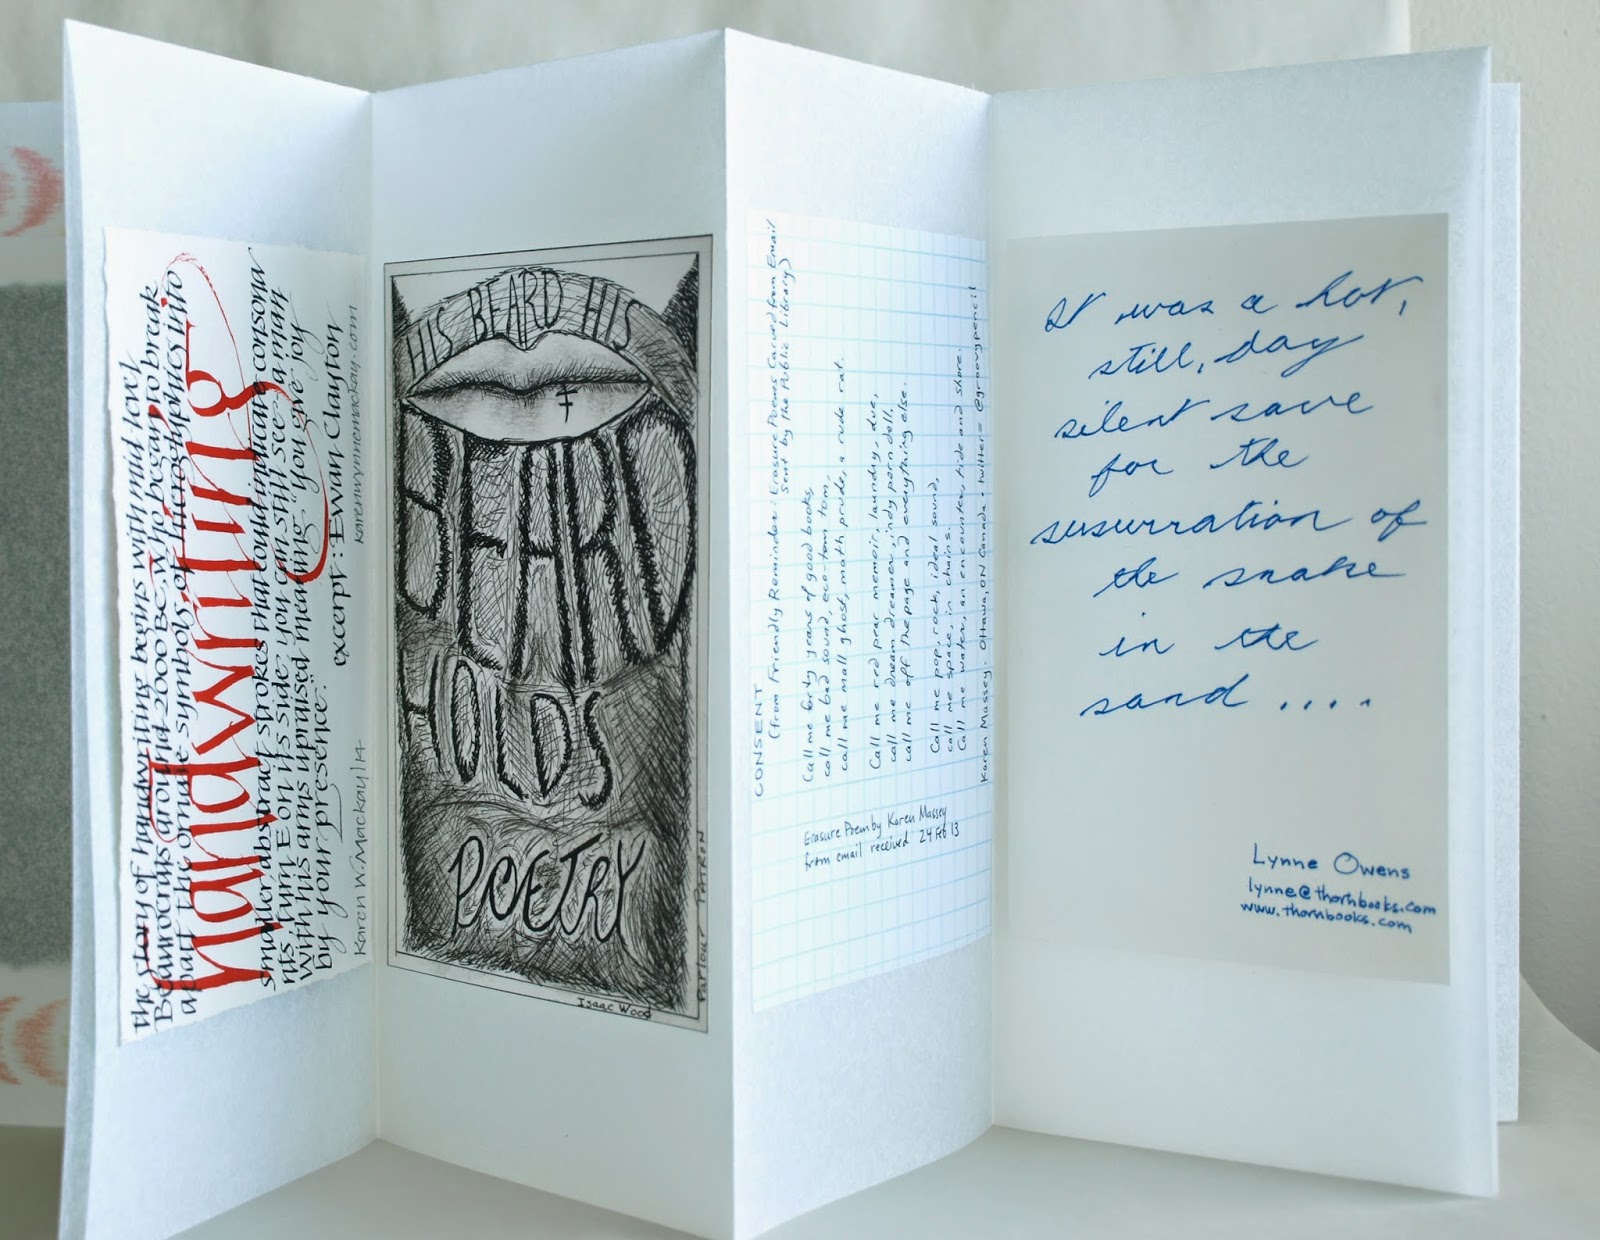 the story of handwriting begins with mid level
Beaurocrats around 2000 BC, who began to break
apart the ornate symbols of hieroglyphics into
handwriting
smaller abstract strokes that could indicate consona
nts, turn E on its side, you can still see - a man
with his arms upraised meaning "you give joy
by your presence."
excerpt: Ewan Clayton
Karen W. Mackay 14
karenwynnemackay.com
HIS BEARD HIS
BEARD
HOLDS
POETRY
Isaac Wood
Parlour Patron
CONSENT
(from Friendly Reminder: Erasure Poems Carved from Email
Sent by the Public Library)
Call me forty years of good books,
call me bad sound, eco-tom tom,
call me mall ghost, math prude, a rude rat.
Call me red pear memoir, laundry, due,
call me dream dreamer, indy porn doll.
call me off the page and everything else.
Call me pop, rock, ideal sound,
call me space, in chains.
Call me water, an encounter, tide and shore.
Karen Massey. Ottawa, ON Canada. twitter = @groovypencil
Erasure Poem by Karen Massey
from email received 24 Feb 13
It was a hot,
still, day
silent save
for the
susurration of
the snake
in the
sand ....
Lynne Owens
lynne@thornbooks.com
www.thornbooks.com